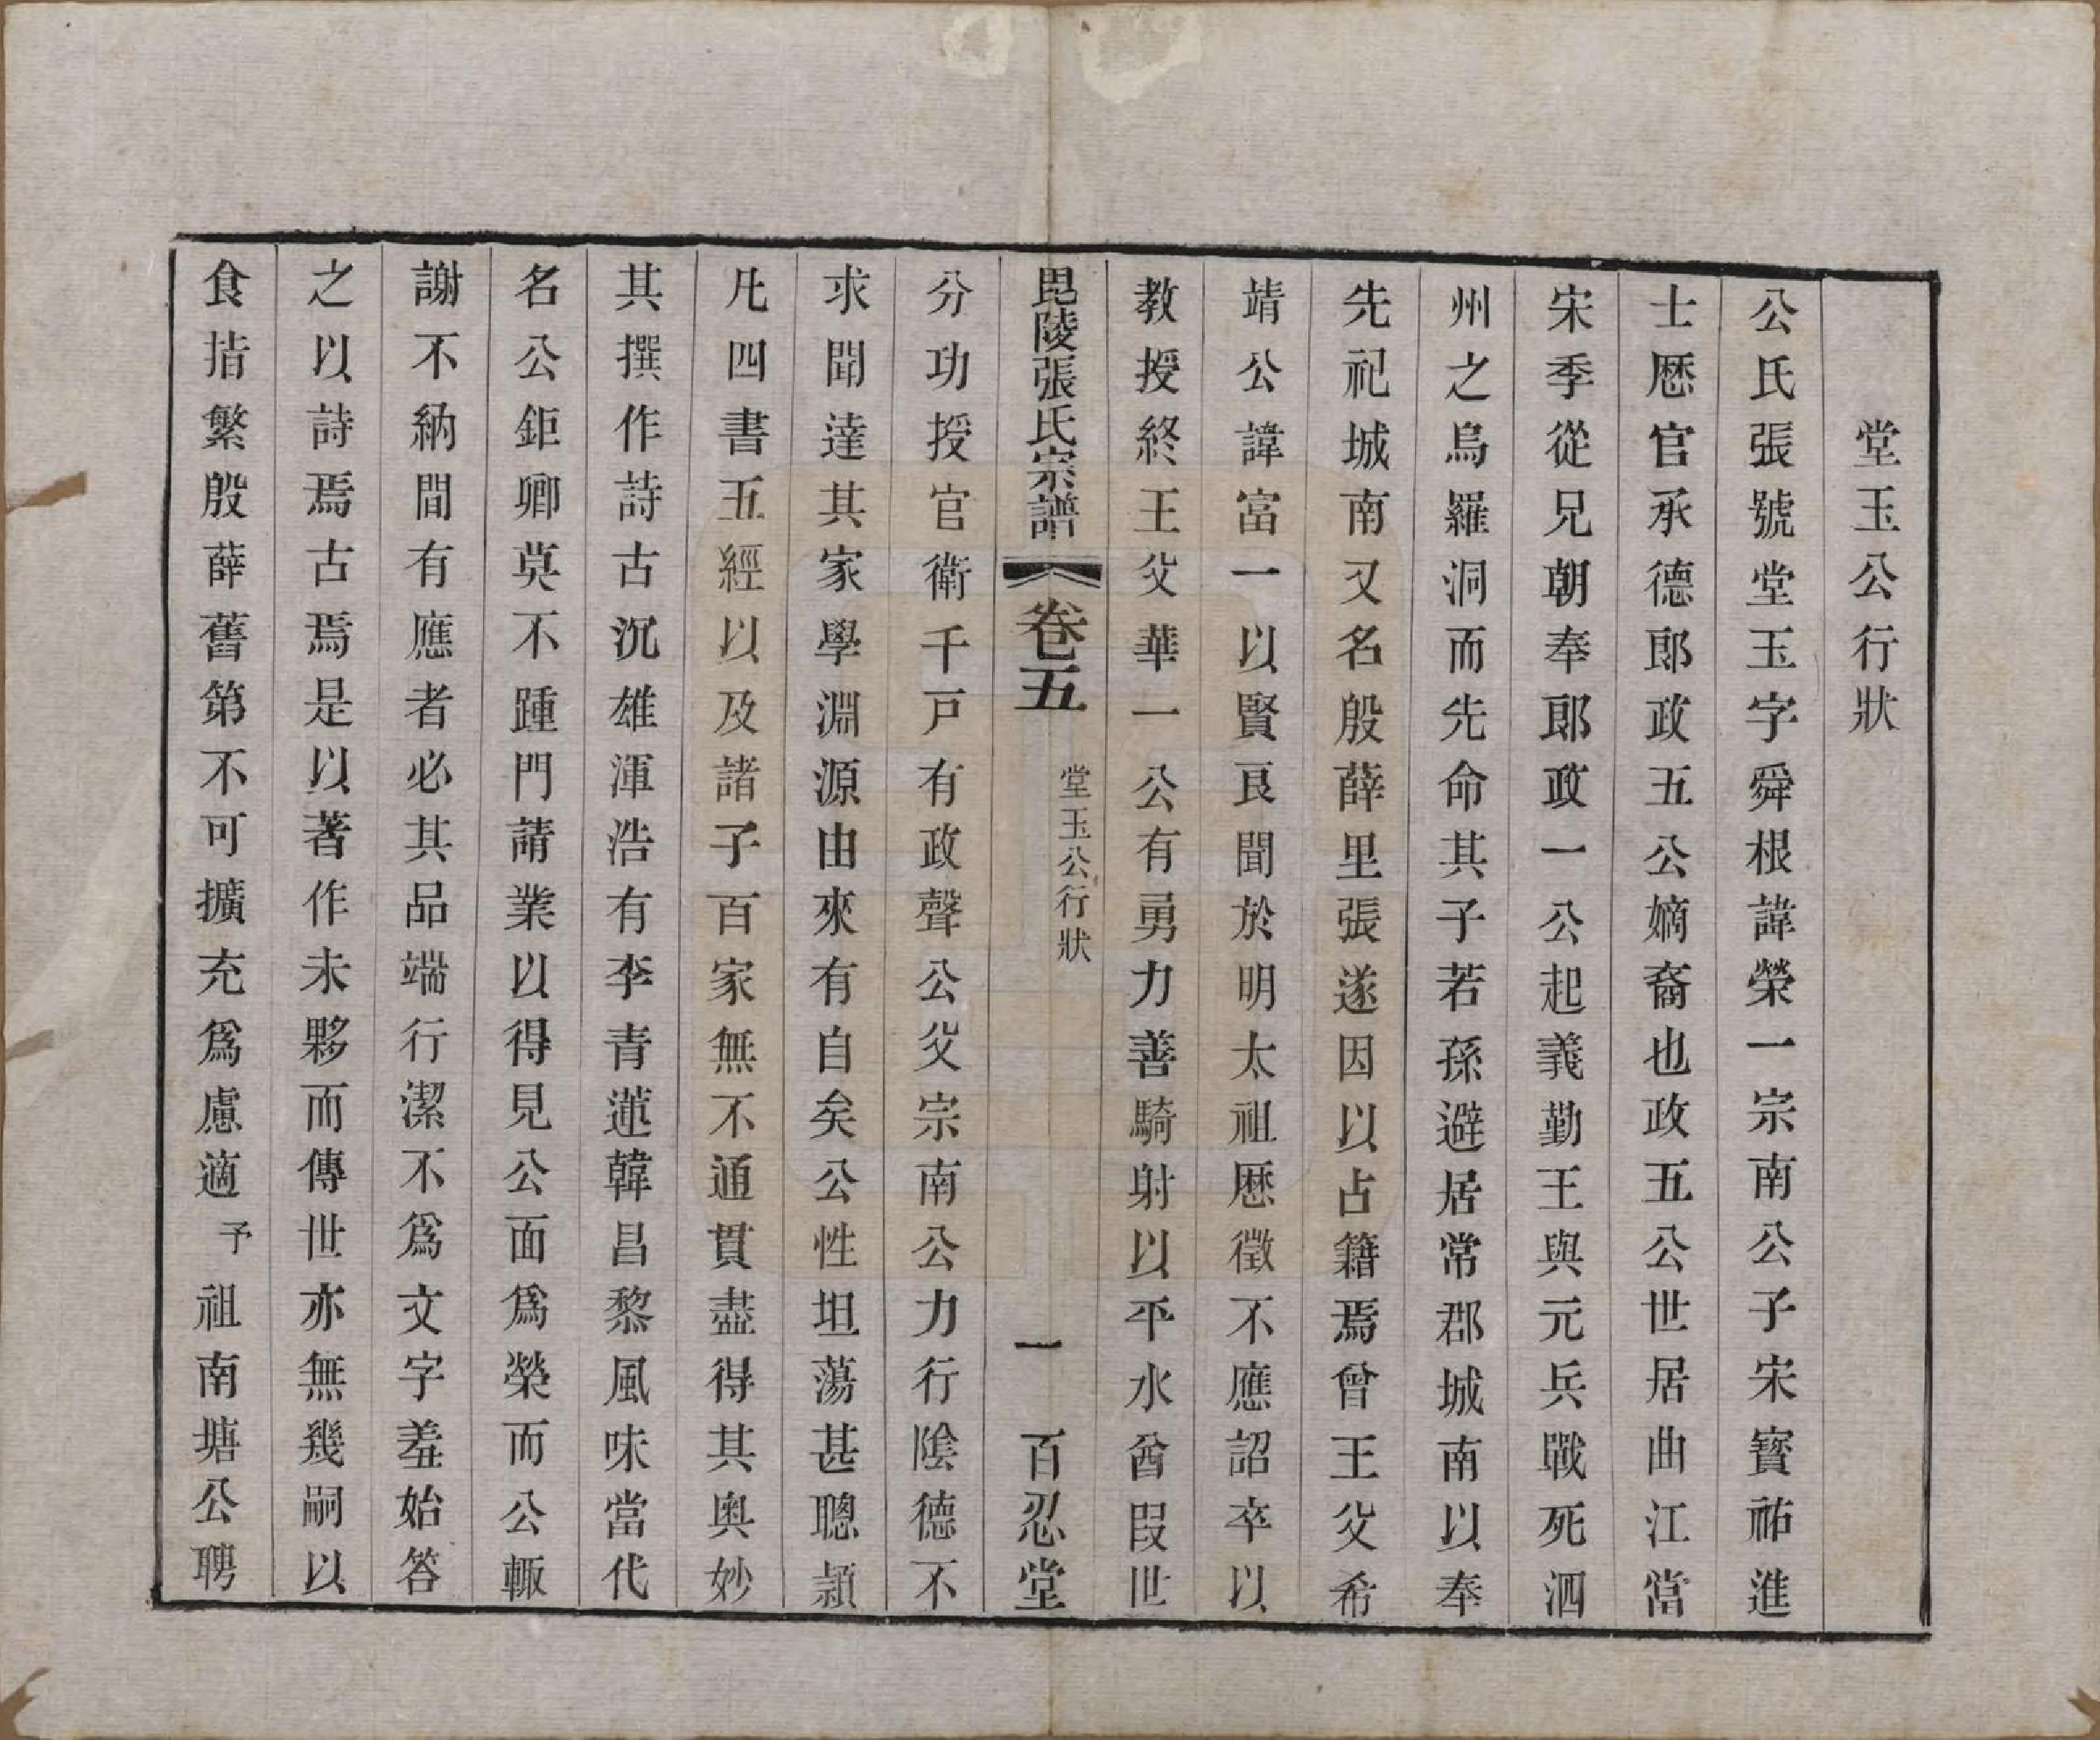 堂玉公行狀
公氏張號堂玉字舜根諱榮一宗南公子宋寳祐進
士厯官承德郎政五公嫡裔也政五公世居曲江當
宋季從兄朝奉郎政一公起義勤王與元兵戰死泗
州之烏羅洞而先命其子若孫避居常郡城南以奉
先祀城南又名殷薛里張遂因以占籍焉曾王父希
靖公諱富一以賢良聞於明太祖厯徵不應詔卒以
教授終王父華一公有勇力善騎射以平水酋叚世
毘陵張氏宗譜 卷五 堂玉公行狀 一 百忍堂
分功授官衛千戸有政聲公父宗南公力行陰德不
求聞達其家學淵源由來有自矣公性坦蕩甚聰頴
凡四書五經以及諸子百家無不通貫盡得其奥妙
其撰作詩古沉雄渾浩有李青蓮韓昌黎風味當代
名公鉅卿莫不踵門請業以得見公面爲榮而公輙
謝不納間有應者必其品端行潔不爲文字羞始答
之以詩焉古焉是以著作未夥而傳世亦無幾嗣以
食指繁殷薛舊第不可擴充爲慮適予祖南塘公聘